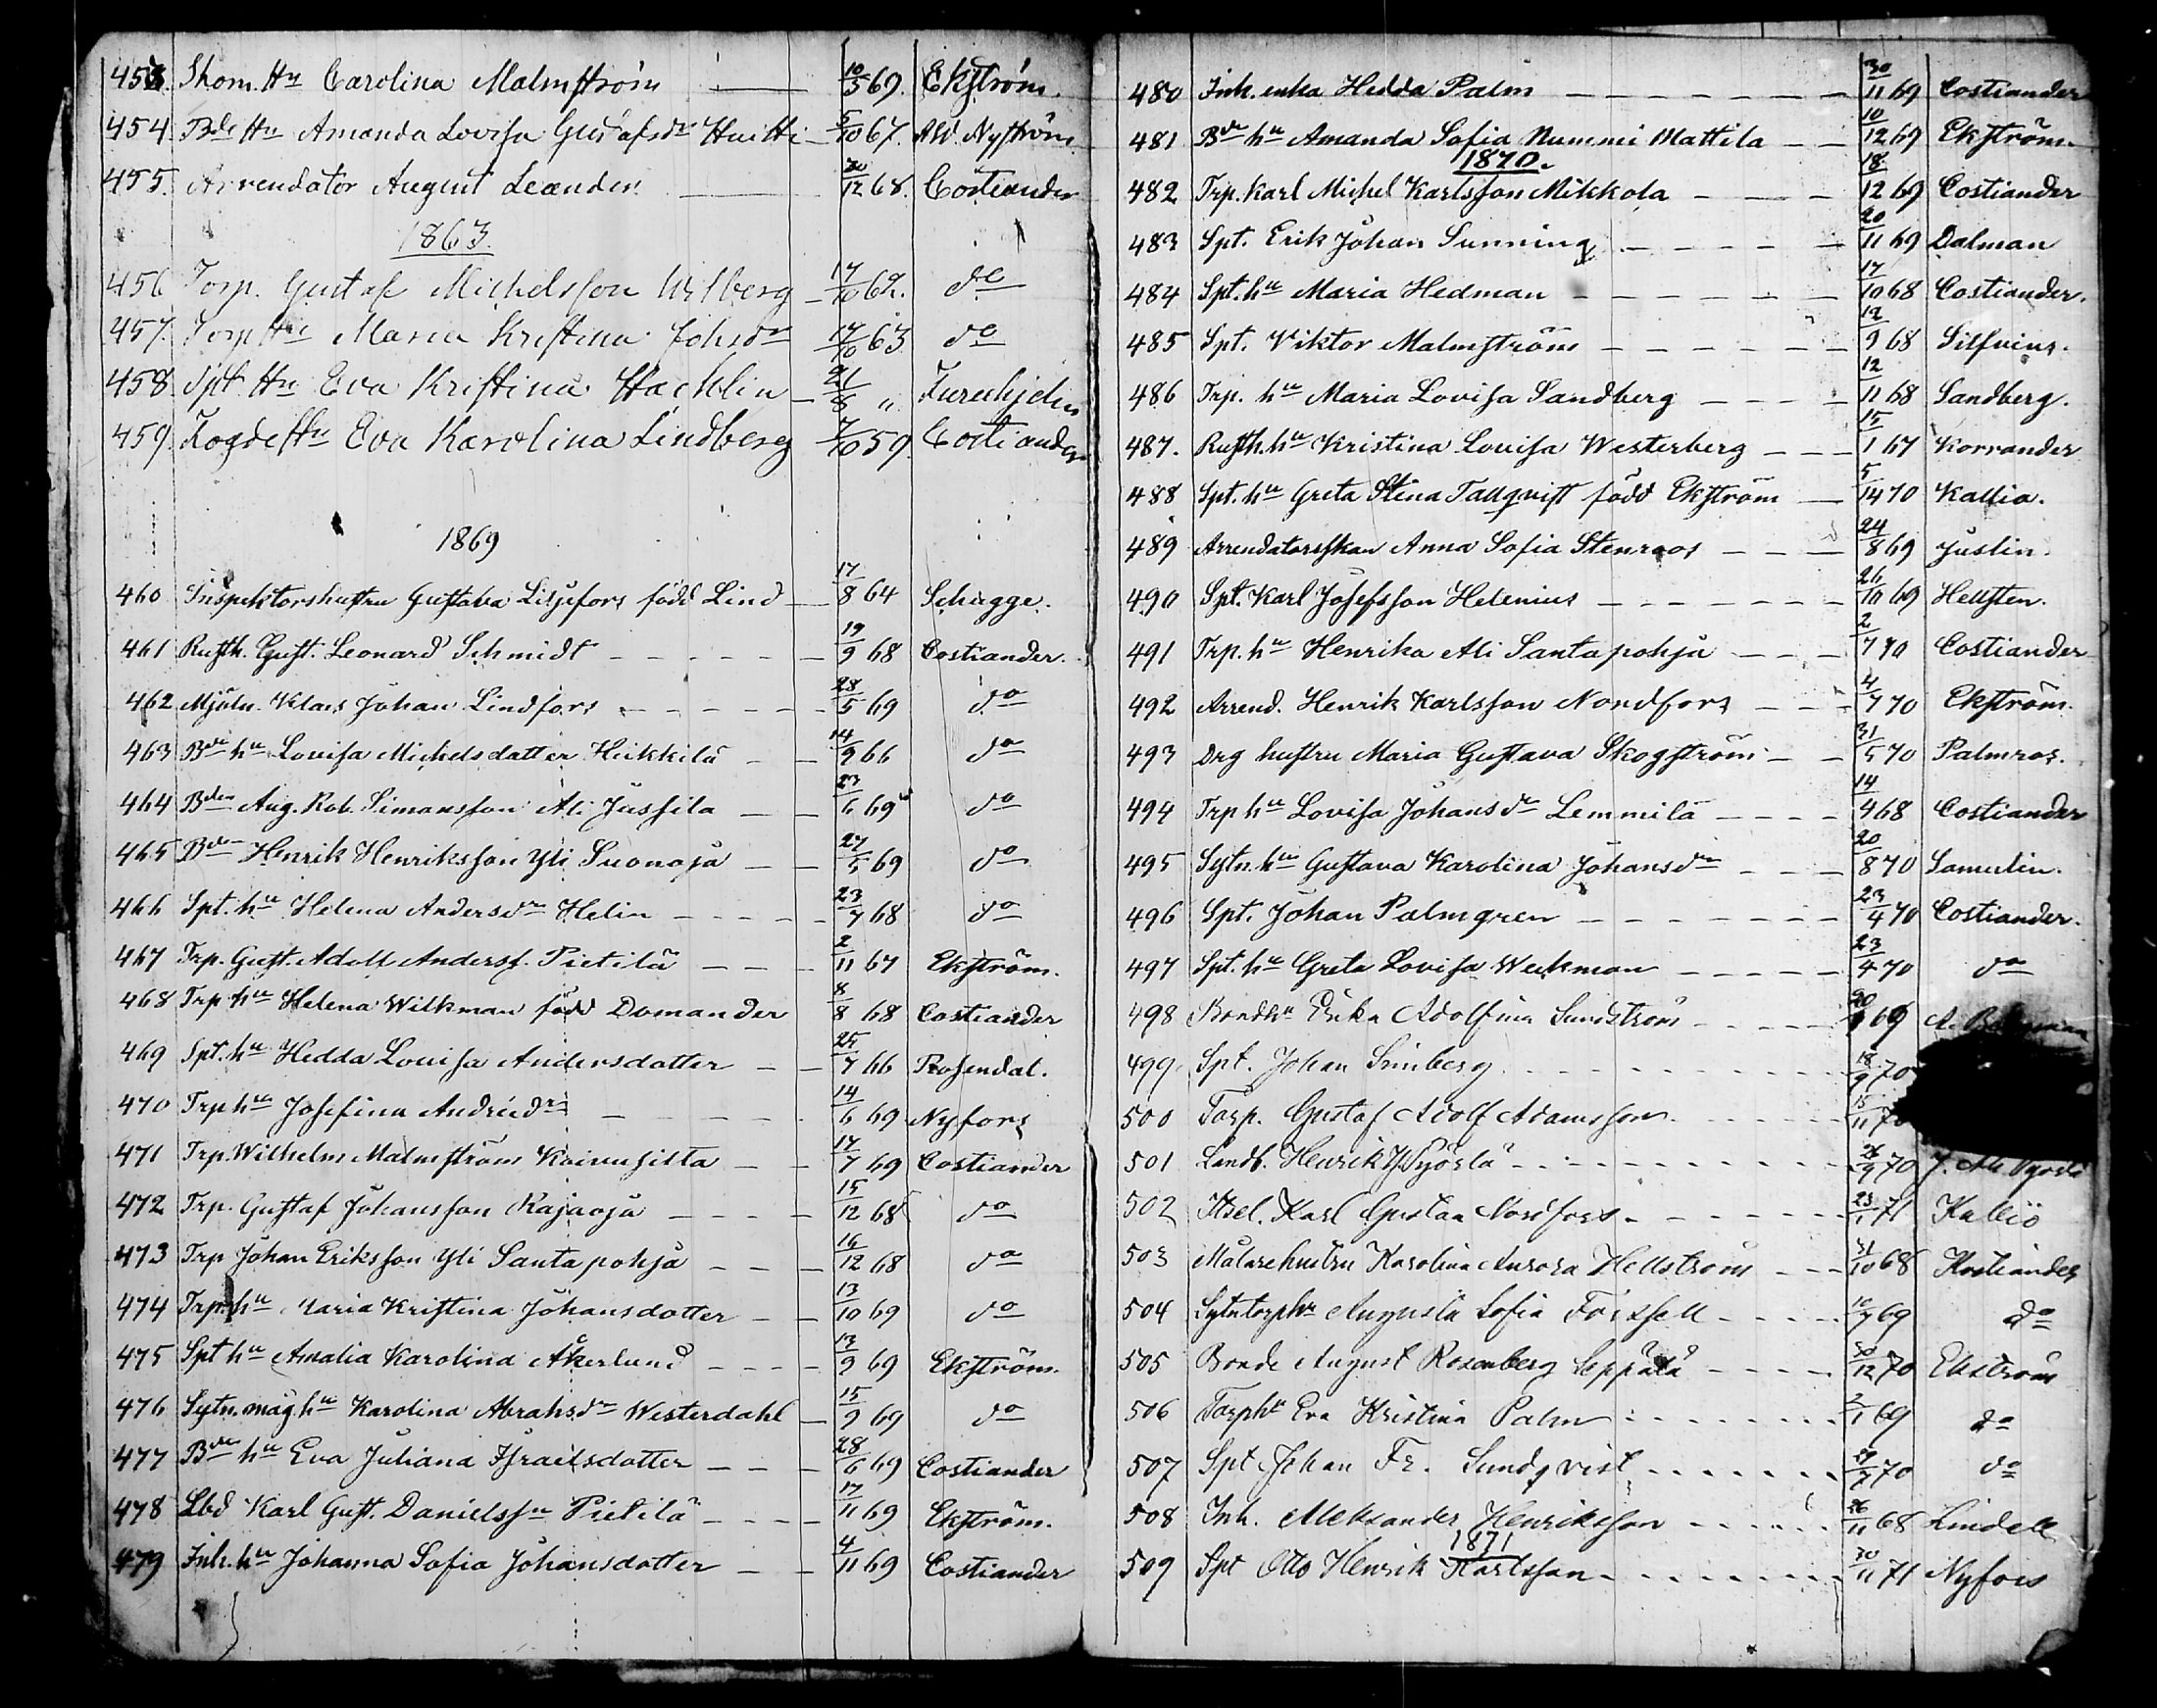 453. Skom. Hu Carolina Malmström 10/5 69. Ekström.
454. Bde Hu Amanda Lovisa Gustafsdr Huitti 5/10 67. Ad. Nyström
455. Arrendator August Leander 20/12 68. Costiander
1863.
456 Torp. Gustaf Michelsson Wilberg 17/10 62. do
457. Torp Hu Maria Kristina Johsdr 17/10 63 do
458. Spt Hu Eva Kristina Hacklin 21/8 „ Furuhjelm
459. Eva Karolina Lindberg 7/10 59. Costiander
1869
460 Inspektorshustru Gustava Liljefors född Lind 17/8 64 Schugge.
461 Rusth. Gust. Leonard Schmidt 19/9 68 Costiander.
462 Mjöln. Klas Johan Lindfors 28/5 69 do
463 Bde hu Lovisa Michelsdatter Heikkilä 14/9 66 do
464 Bden Aug. Rob. Simonsson Ali Jussila 23/6 69 do
465 Bden Henrik Henriksson Yli Suonoja 27/5 69 do
466 Spt. hu Helena Andersdr Helin 23/7 68 do
467 Trp. Gust. Adolf Andersf. Pietilä 2/11 67 Ekström.
468 Trp hu Helena Wilkman född Domander 8/8 68 Costiander
469 Spt. hu Hedda Lovisa Andersdotter 25/7 66 Rosendal.
470 Trp hu Josefina Andriedr 14/6 69 Nyfors
471 Trp. Wilhelm Malmström Koivusilta 17/7 69 Costiander
472 Trp. Gustaf Johansson Rajaoja 15/12 68 do
473 Trp Johan Eriksson Yli Santapohja 16/12 68 do
474 Trp. hu Maria Kristina Johansdotter 13/10 69 do
475 Spt hu Amalia Karolina Åkerlund 13/9 69 Ekström.
476 Sytn. måg hu Karolina Abrahsdr Westerdahl 15/9 69 do
477 Bde hu Eva Juliana Israelsdotter 28/6 69 Costiander
478 Lbd Karl Gust. Danielssn Pietilä 17/11 69 Ekström.
479 Inh. hu Johanna Sofia Johansdotter 4/11 69 Costiander
480 Inh. enka Hedda Palm 30/11 69 Costiander
481 Bde hu Amanda Sofia Nummi Mattila 10/12 69 Ekström.
1870.
482 Trp. Karl Michel Karlsson Mikkola 18/12 69 Costiander
483 Spt. Erik Johan Sunning 20/11 69 Dalman
484 Spt. hu Maria Hedman 17/10 68 Costiander.
485 Spt. Viktor Malmström 12/9 68 Silfvius.
486 Trp. hu Maria Lovisa Sandberg 12/11 68 Sandberg.
487. Rusth. hu Kristina Lovisa Westerberg 15/1 67 Korrander
488 Spt. hu Greta Stina Tallqvist född Ekström 5/14 70 Kallia.
489 Arrendatorsskan Anna Sofia Stenroos 24/8 69 Justin.
490 Spt. Karl Josefsson Helenius 26/10 69 Hellsten.
491 Trp. hu Henrika Ali Santapohja 2/7 70 Costiander
492 Arrend. Henrik Karlsson Nordfors 4/7 70 Ekström.
493 Drg hustru Maria Gustava Skogström 31/5 70 Palmros.
494 Trp hu Lovisa Johansdr Lemmilä 14/4 68 Costiander
495 Sytn. hu Gustava Karolina Johansdr 20/8 70 Samulin.
496 Spt. Johan Palmgren 23/4 70 Costiander.
497 Spt. hu Greta Lovisa Weckman 23/4 70 do
498 Bondhu Erika Adolfina Sundström 69 A.
499. Spt. Johan Simberg 18/9 70
500 Torp. Gustaf Adolf Adamsson 15/11 70
501 Landb. Henrik Yl. Syörlä 26/9 70
502 Itsel. Karl Gustaa Nordfors 23/1 71 Kallio
503 Målarehustru Karolina Aurora Hellström 31/10 68 Kostiander
504 Sytntorphu Augusta Sofia Forssell 10/9 69 do
505 Bonde August Rosenberg Seppälä 30/12 70 Ekström
506 Torphu Eva Kristina Palm 2/1 69 do
507 Spt Johan Fr. Sundqvist 29/7 70 do
508 Inh. Aleksander Henriksson 26/11 68 Lindell
1871
509 Spt Otto Henrik Karlsson 30/11 71 Nyfors